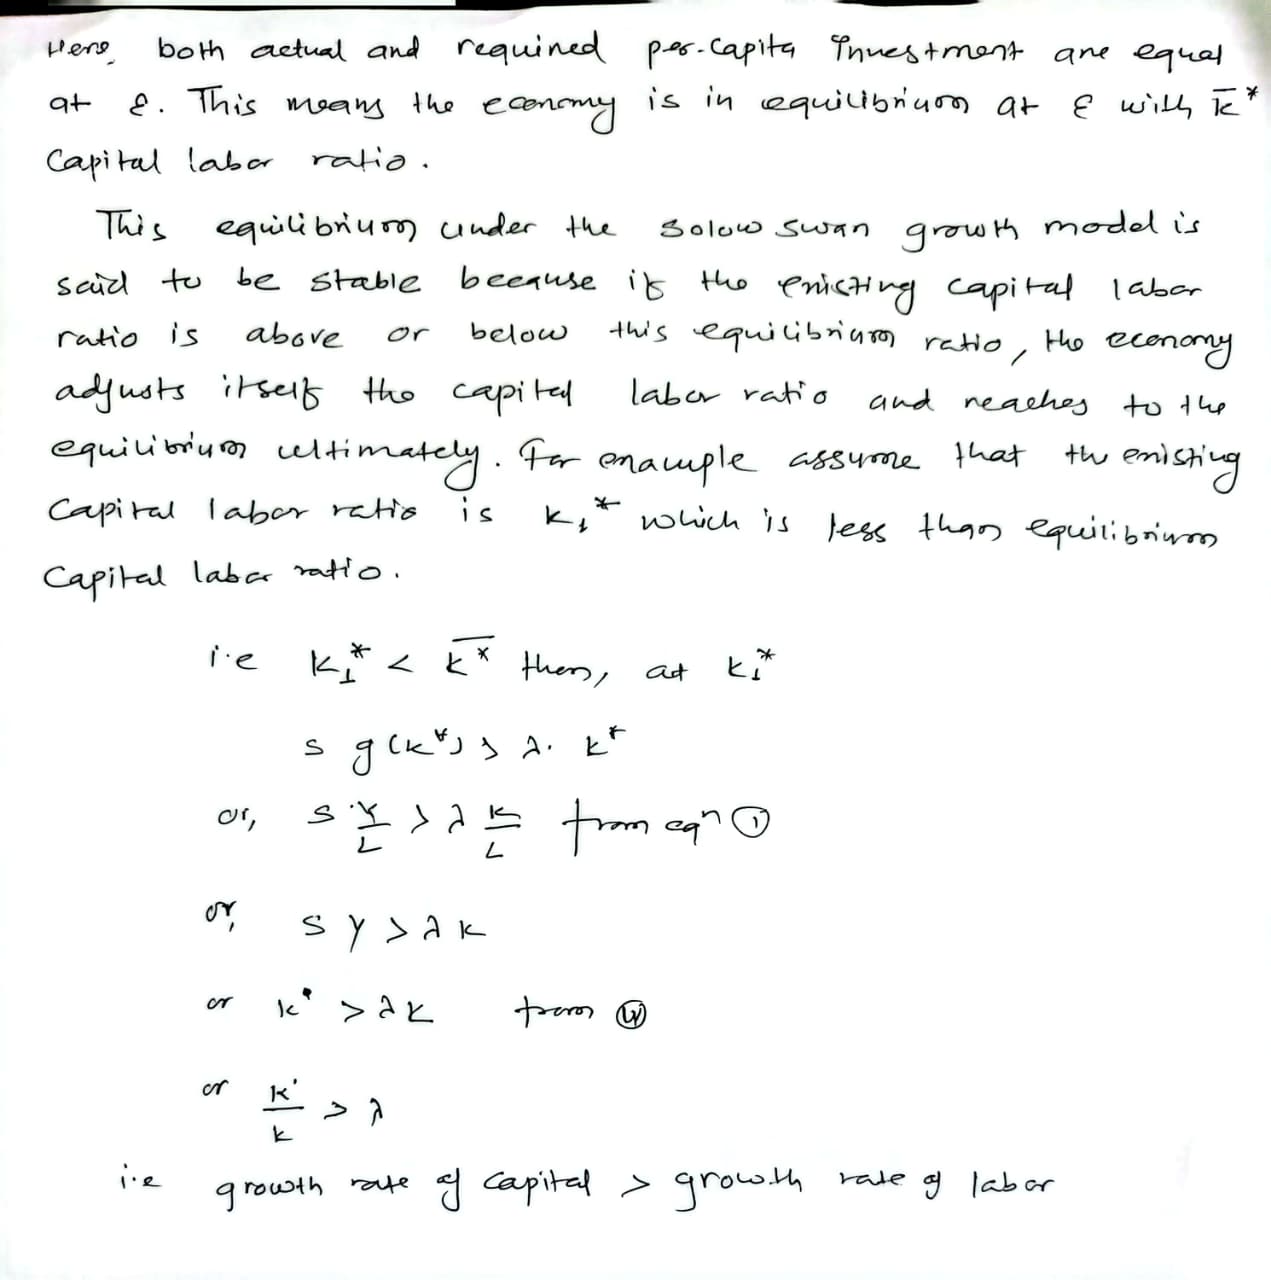 Here, both actual and required per-capita investment are equal
at E. This means the economy is in equilibrium at E with k̅*
Capital labor ratio.
This equilibrium under the Solow Swan growth model is
said to be stable because if the existing capital labor
ratio is above or below this equilibrium ratio, the economy
adjusts itself the capital labor ratio and reaches to the
equilibrium ultimately. For example assume that the existing
Capital labor ratio is k₁* which is less than equilibrium
Capital labor ratio.
i.e k₁* < k̅* then, at k₁*
s g(k*) > λ. k*
or, s.Y/L > λ K/L from eqⁿ ①
or, s Y > λ K
or K• > λ K from ⓘⓥ
or K•/K > λ
i.e growth rate of capital > growth rate of labor